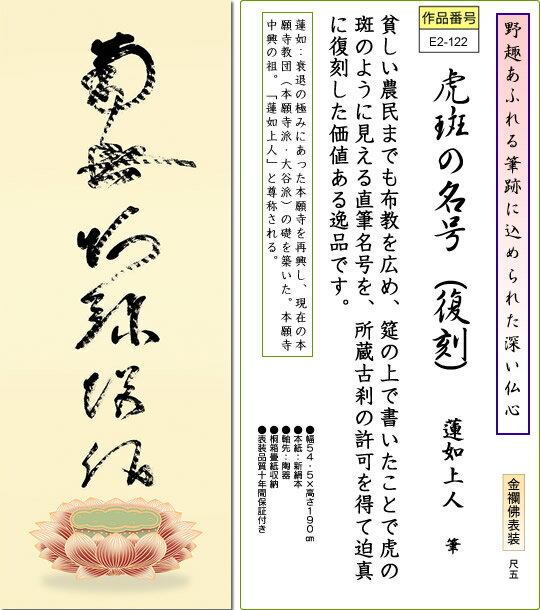 南無阿弥陀仏
野趣あふれる筆跡に込められた深い仏心
金襴佛表装
尺五
作品番号
E2-122
虎斑の名号(復刻)
蓮如上人 筆
貧しい農民までも布教を広め、筵の上で書いたことで虎の
斑のように見える直筆名号を、所蔵古刹の許可を得て迫真
に復刻した価値ある逸品です。
蓮如：衰退の極みにあった本願寺を再興し、現在の本
願寺教団（本願寺派・大谷派）の礎を築いた。本願寺
中興の祖。「蓮如上人」と尊称される。
●幅５４．５×高さ１９０㎝
●本紙：新絹本
●軸先：陶器
●桐箱畳紙収納
●表装品質十年間保証付き